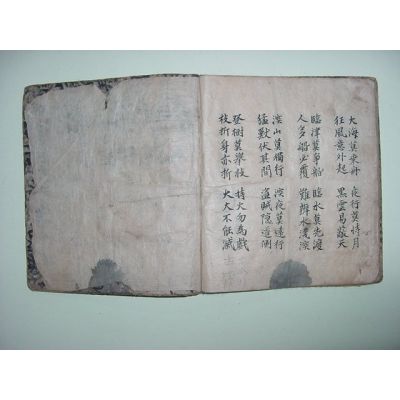 大海莫乘舟　夜行莫恃月
狂風意外起　黑雲易蔽天
臨津莫爭船　臨水莫先渡
人多船必覆　難辨水淺深
深山莫獨行　深夜莫遠行
猛獸伏其間　盜賊隱道側
登樹莫攀枝　持火勿為戲
枝折身亦折　火大不能滅